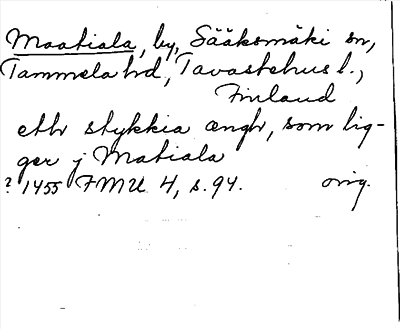 Maatiala, by, Sääksmäki sn,
Tammela hd, Tavastehus l.,
Finland
eth stykkia ængh, som lig-
ger j Matiala
? 1455 FMU 4, s. 94. orig.